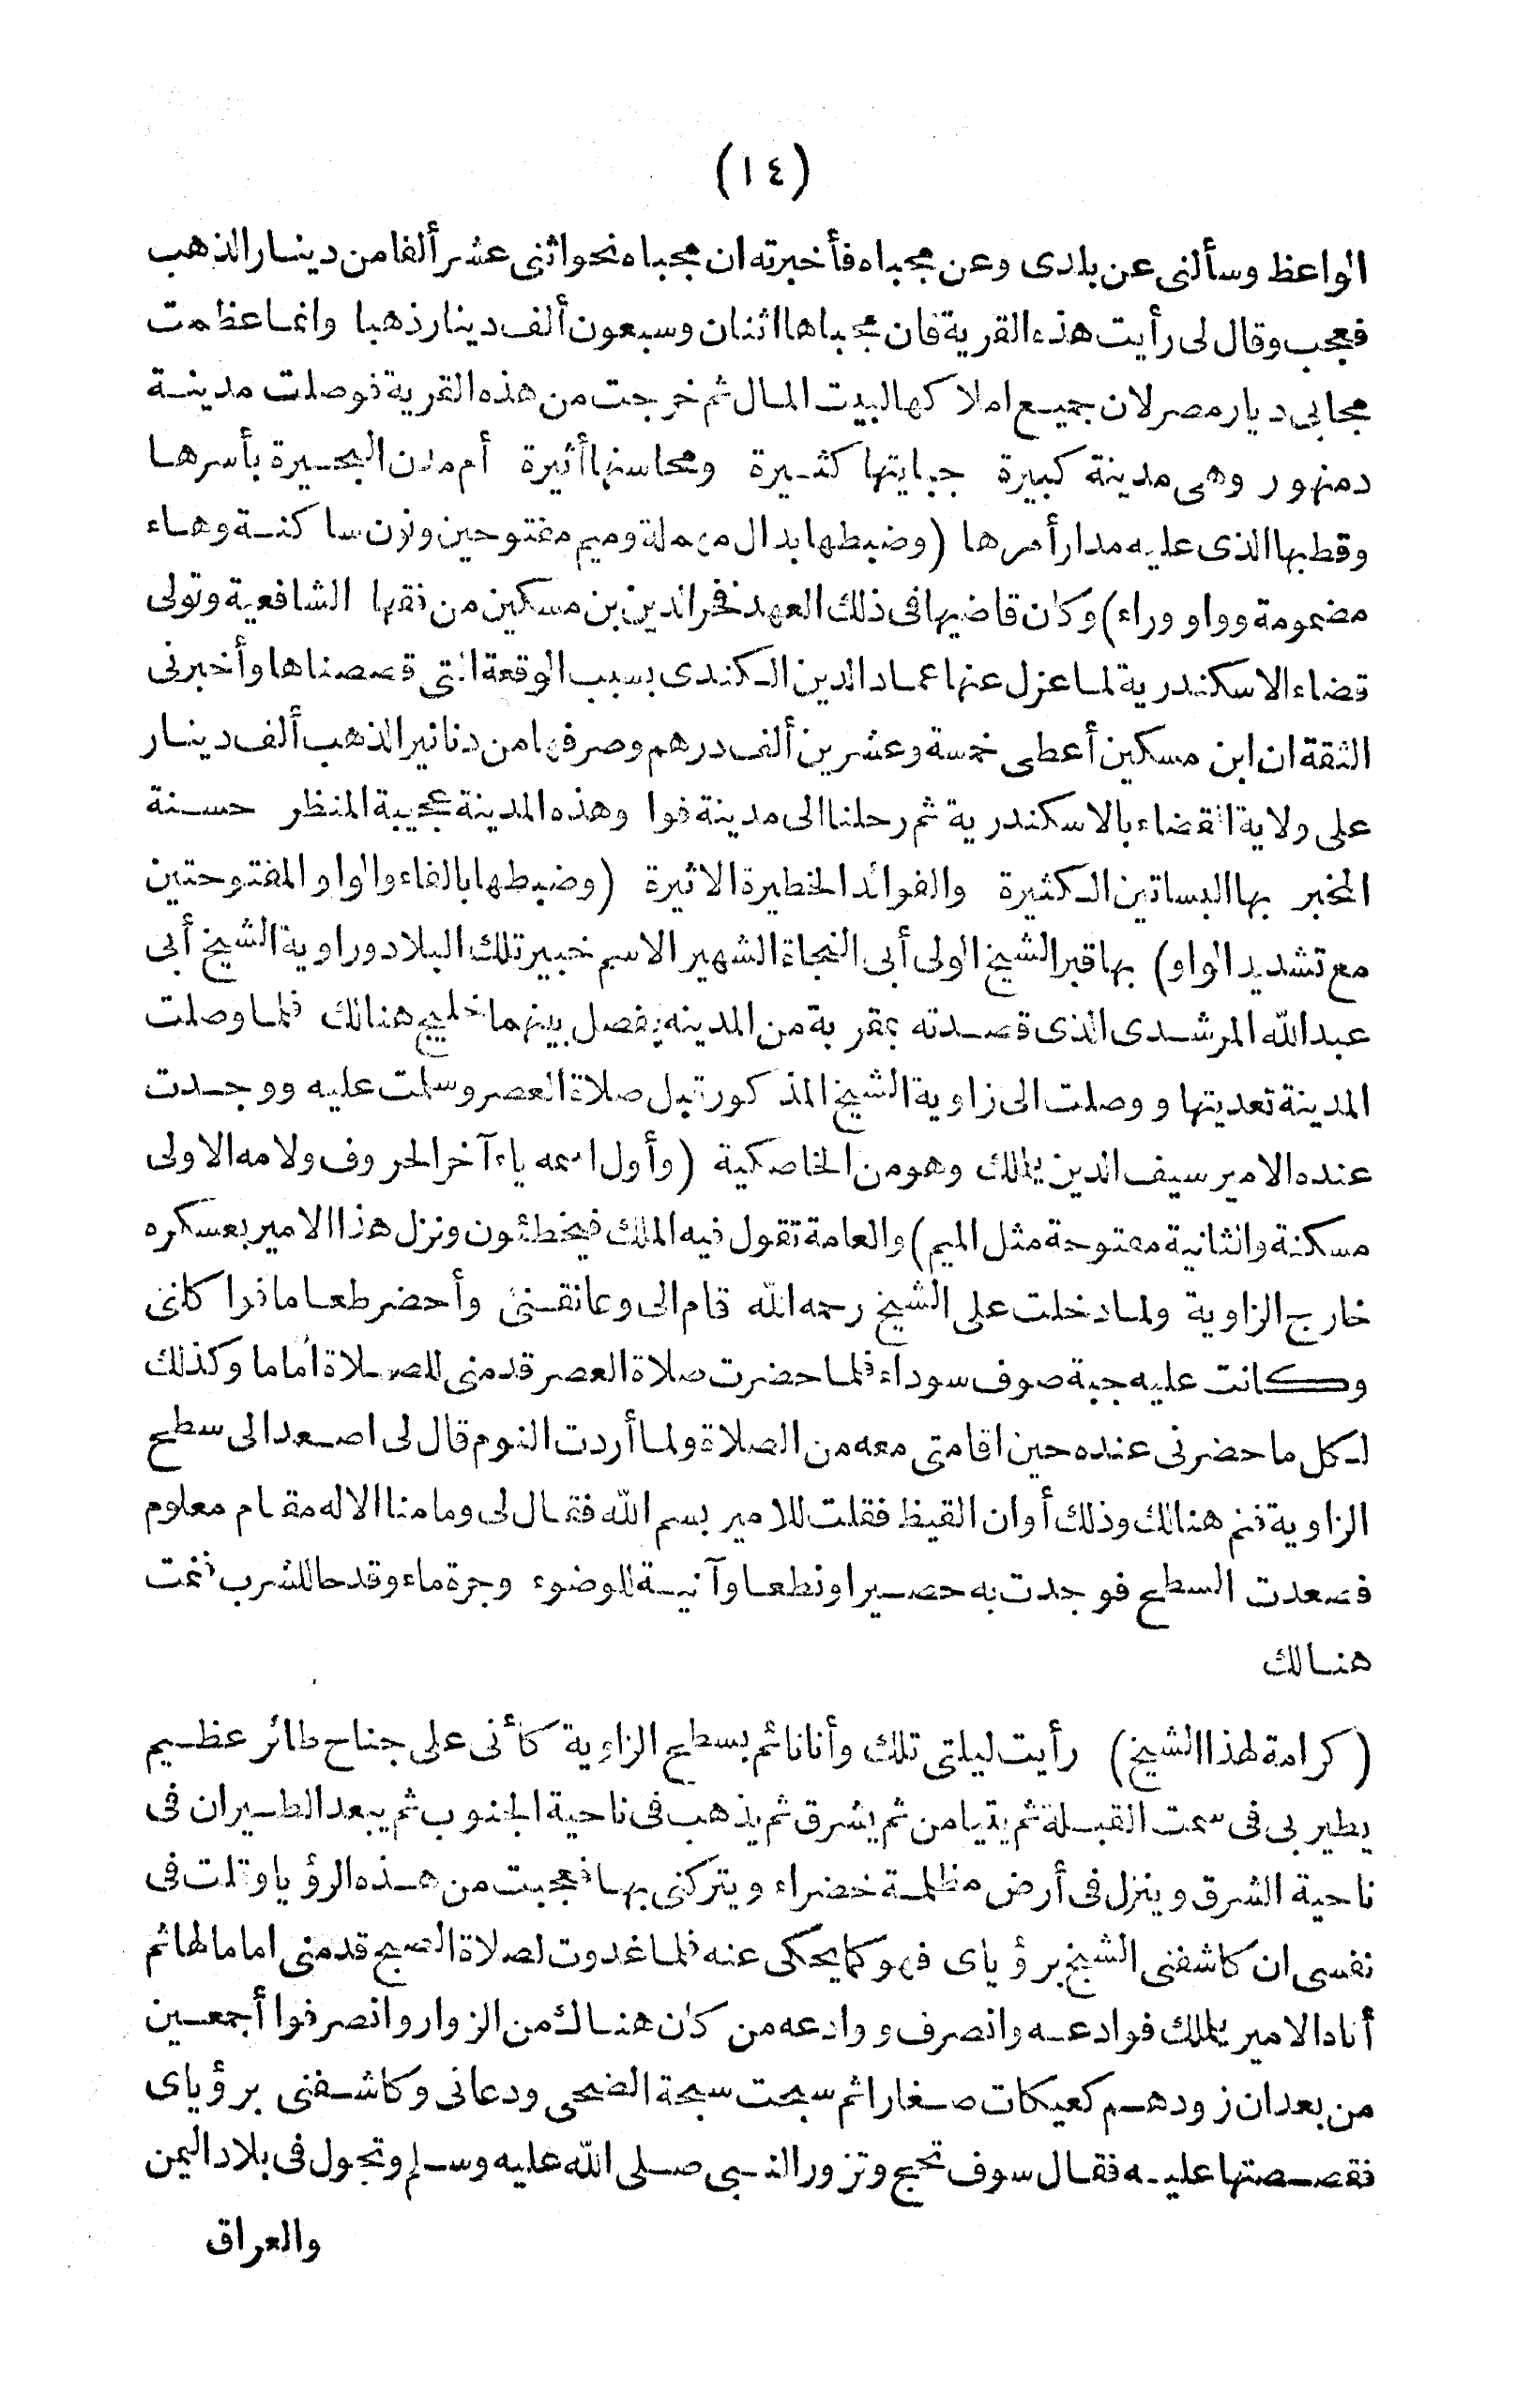 (١٤)
الواعظ وسألنى عن بلادى وعن مجباه فأخبرته ان مجباه نحو اثنى عشر ألفا من دينار الذهب
فعجب وقال لى رأيت هذه القرية فان مجباها اثنان وسبعون ألف دينار ذهبا وانما عظمت
مجابى ديار مصر لان جميع املاكها لبيت المال ثم خرجت من هذه القرية فوصلت مدينة
دمنهور وهى مدينة كبيرة جبايتها كثيرة ومحاسنها أثيرة أم مدن البحيرة بأسرها
وقطبها الذى عليه مدار أمرها (وضبطها بدال مهملة وميم مفتوحين ونون ساكنة وهاء
مضمومة وواو وراء) وكان قاضيها فى ذلك العهد فخر الدين بن مسكين من فقها الشافعية وتولى
قضاء الاسكندرية لما عزل عنها عماد الدين الكندى بسبب الوقعة التى قصصناها وأخبرنى
الثقة ان ابن مسكين أعطى خمسة وعشرين ألف درهم وصرفها من دنانير الذهب ألف دينار
على ولاية القضاء بالاسكندرية ثم رحلنا الى مدينة فوا وهذه المدينة عجيبة المنظر حسنة
المخبر بها البساتين الكثيرة والفوائد الخطيرة الاثيرة (وضبطها بالفاء والواو المفتوحتين
مع تشديد الواو) بها قبر الشيخ الولى أبى النجاة الشهير الاسم خبير تلك البلاد وزاوية الشيخ أبى
عبد الله المرشدى الذى قصدته بمقربة من المدينه يفصل بينهما خليج هنالك فلما وصلت
المدينة تعديتها ووصلت الى زاوية الشيخ المذكور قبل صلاة العصر وسلمت عليه ووجدت
عنده الامير سيف الدين يلملك وهو من الخاصكية (وأول اسمه ياء آخر الحروف ولامه الاولى
مسكنة والثانية مفتوحة مثل الميم) والعامة تقول فيه الملك فيخطئون ونزل هذا الامير بعسكره
خارج الزاوية ولما دخلت على الشيخ رحمه الله قام الى وعانقنى وأحضر طعاما فواكلنى
وكانت عليه جبة صوف سوداء فلما حضرت صلاة العصر قدمنى للصلاة اماما وكذلك
لكل ما حضرنى عنده حين اقامتى معه من الصلاة ولما أردت النوم قال لى اصعد الى سطح
الزاوية فنم هنالك وذلك أوان القيظ فقلت للامير بسم الله فقال لى وما منا الا له مقام معلوم
فصعدت السطح فوجدت به حصيرا ونطعا وآنية للوضوء وجرة ماء وقدحا للشرب فنمت
هنالك
(كرامة لهذا الشيخ) رأيت ليلتى تلك وأنا نائم بسطح الزاوية كأنى على جناح طائر عظيم
يطير بى فى سمت القبلة ثم يتيامن ثم يشرق ثم يذهب فى ناحية الجنوب ثم يبعد الطيران فى
ناحية الشرق وينزل فى أرض مظلمة خضراء ويتركنى بها فعجبت من هذه الرؤيا وقلت فى
نفسى ان كاشفنى الشيخ برؤياى فهو كما يحكى عنه فلما غدوت لصلاة الصبح قدمنى اماما لها ثم
أتاه الامير يلملك فوادعه وانصرف ووادعه من كان هناك من الزوار وانصرفوا أجمعين
من بعد ان زودهم كعيكات صغارا ثم سبحت سبحة الضحى ودعانى وكاشفنى برؤياى
فقصصتها عليه فقال سوف تحج وتزور النبى صلى الله عليه وسلم وتجول فى بلاد اليمن
والعراق